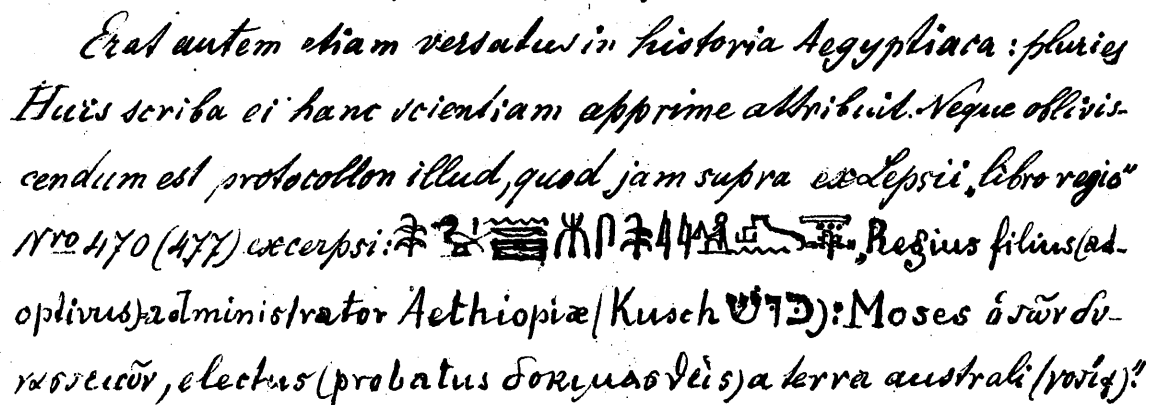 Erat autem etiam versatus in historia Aegyptiaca : pluries
Huis scriba ei hanc scientiam apprime attribuit. Neque oblivis-
cendum est protocollon illud, quod jam supra ex Lepsii „libro regio“
Nro 470 (477) excerpsi: „Regius filius (ad-
optivus)-administrator Aethiopiæ (Kusch כוש): Moses
electus (probatus δοκιμασθεὶς) a terra australi